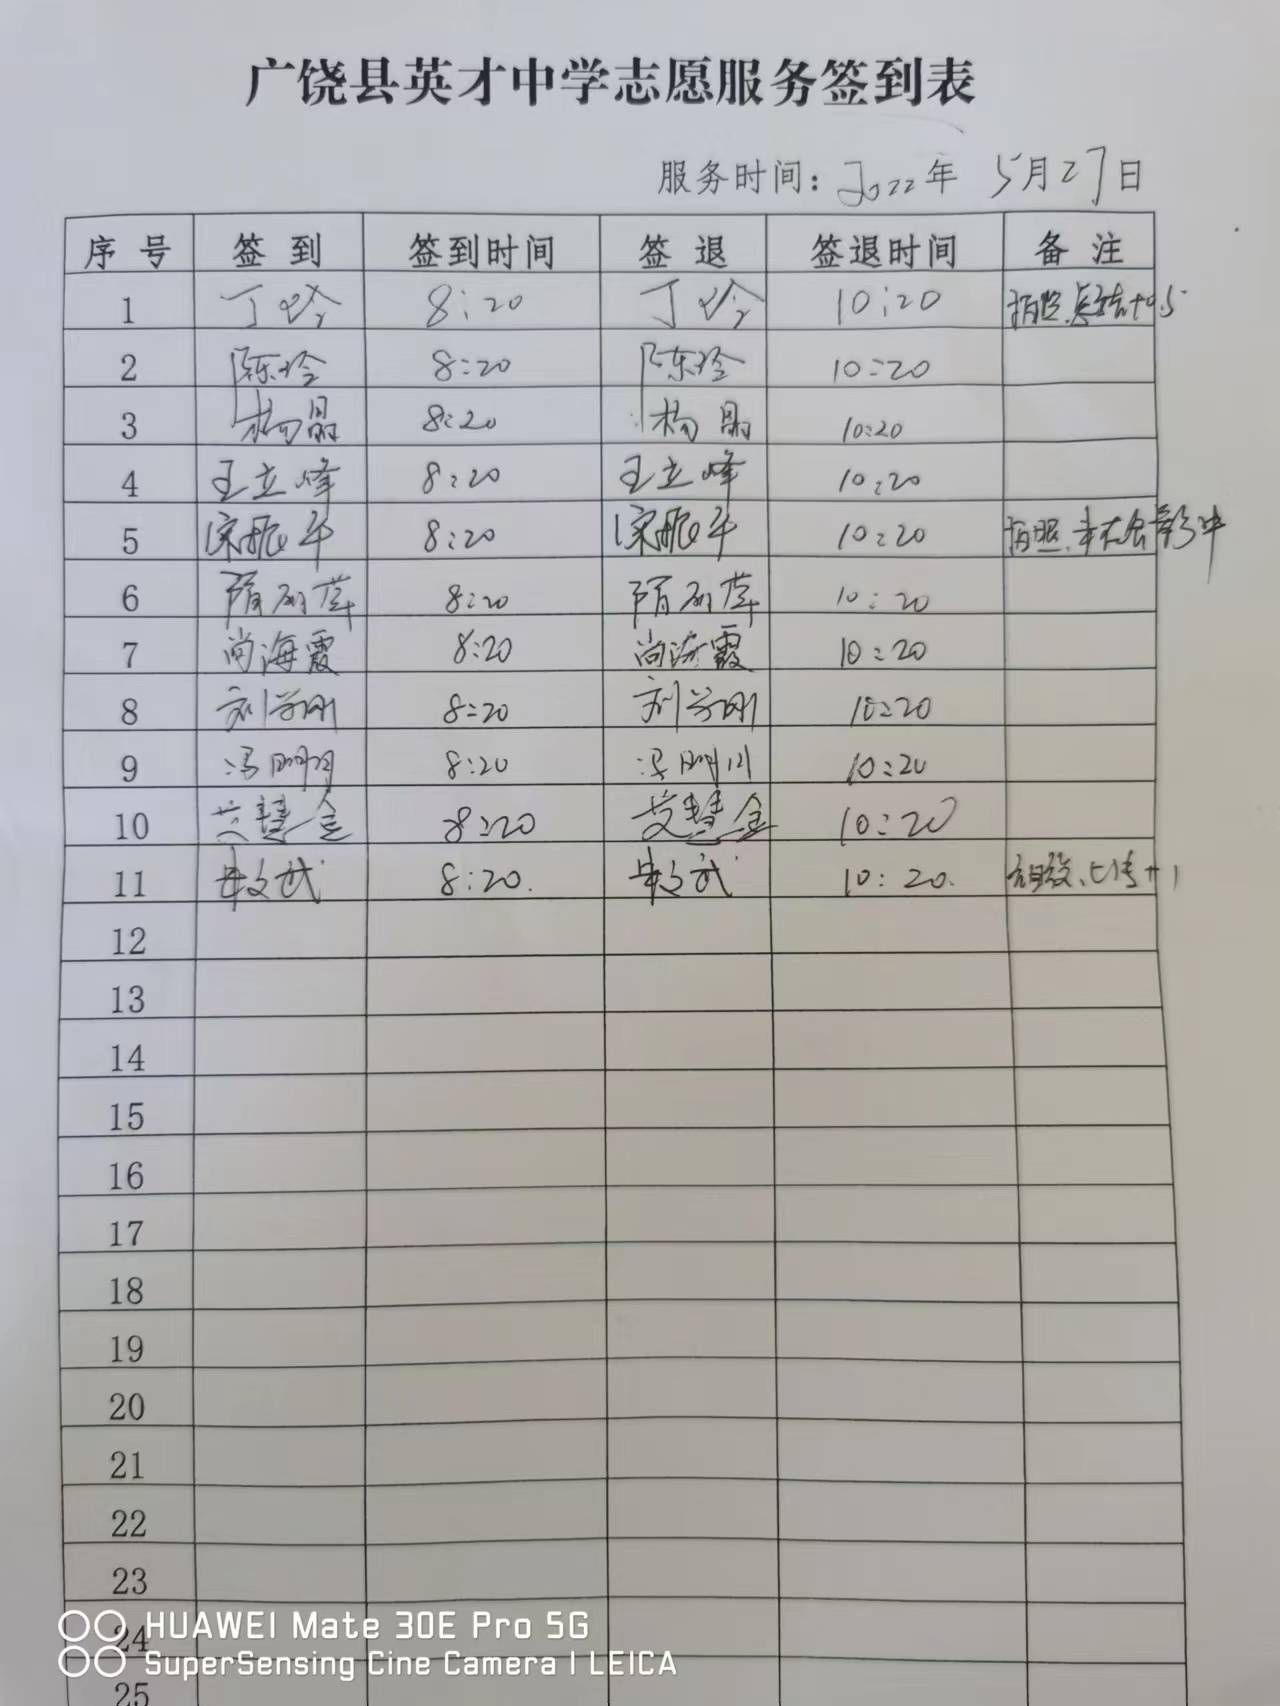 广饶县英才中学志愿服务签到表
服务时间：2022年 5月27日
序号 签到 签到时间 签退 签退时间 备注
1 丁玲 8:20 丁玲 10:20 拍照、总结+0.5
2 陈玲 8:20 陈玲 10:20
3 杨晶 8:20 杨晶 10:20
4 王立峰 8:20 王立峰 10:20
5 8:20 10:20 拍照
6 8:20 10:20
7 尚海霞 8:20 尚海霞 10:20
8 刘学刚 8:20 刘学刚 10:20
9 8:20 10:20
10 慧金 8:20 慧金 10:20
11 8:20. 10:20. +1
12
13
14
15
16
17
18
19
20
21
22
23
24
25
HUAWEI Mate 30E Pro 5G
SuperSensing Cine Camera | LEICA